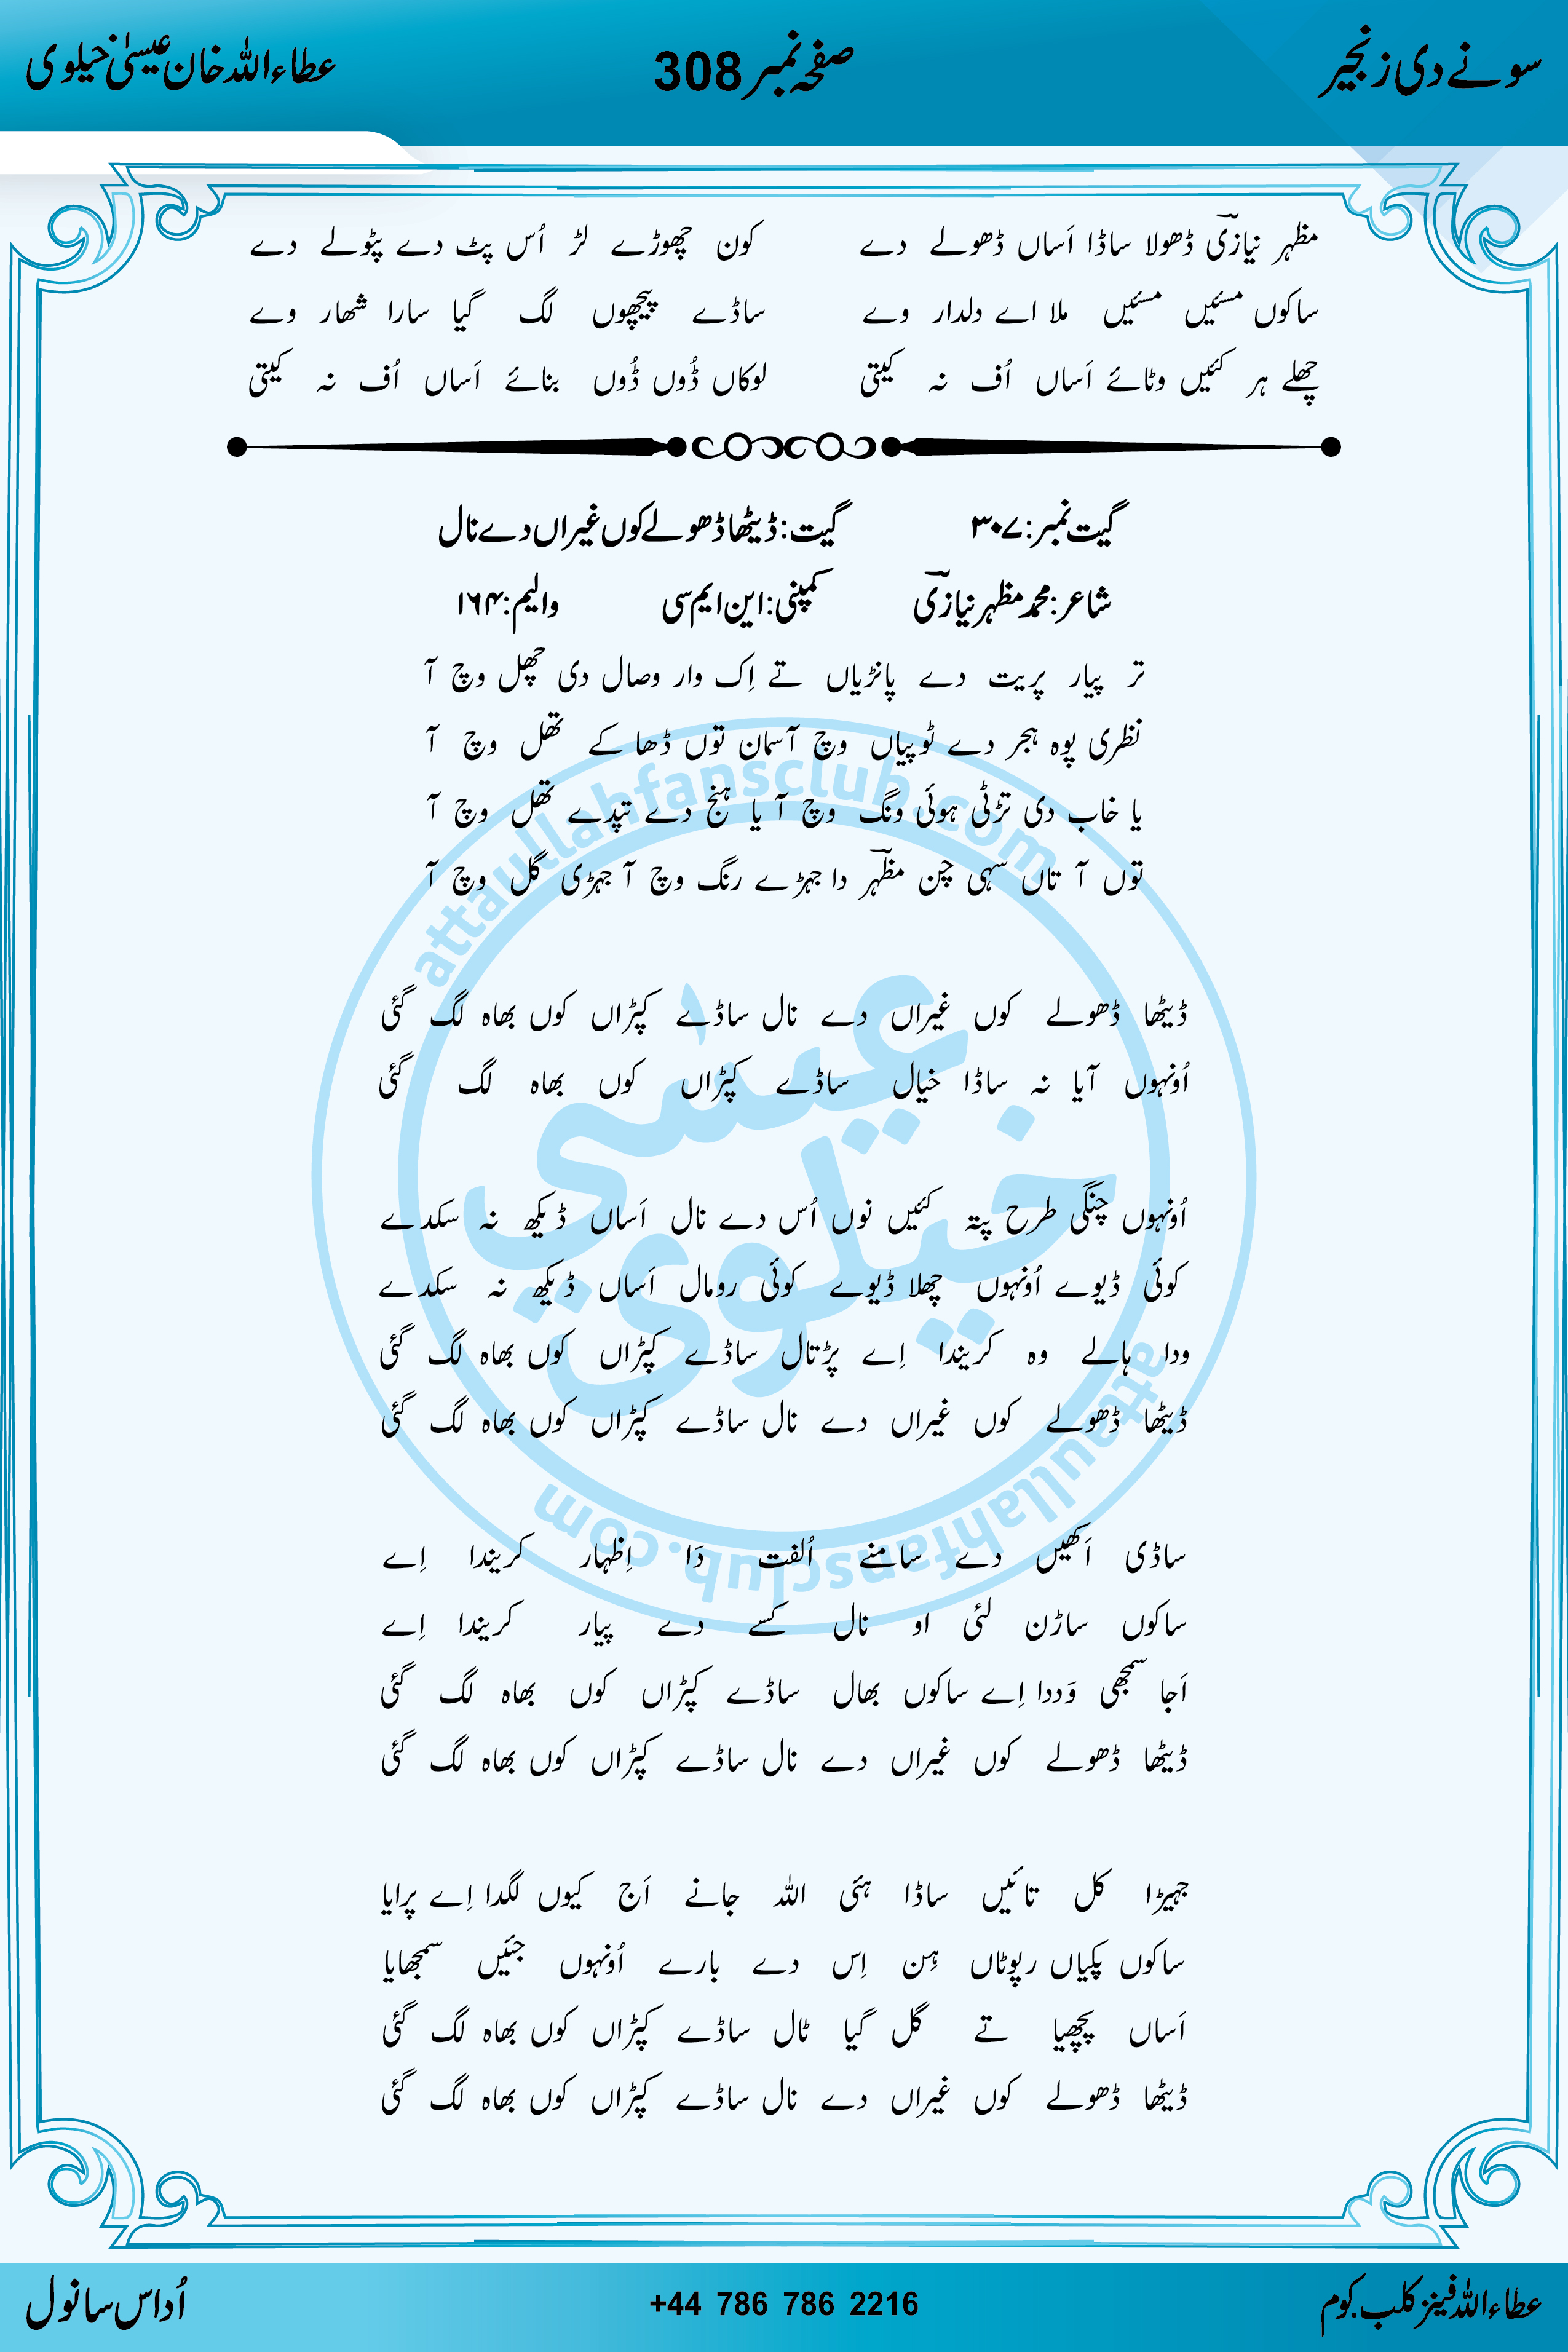 سونے دی زنجیر صفحہ نمبر 308 عطاءاللہ خان عیسیٰ خیلوی
مظہر نیازیؔ ڈھولا ساڈا اَساں ڈھولے دے کون چھوڑے لڑ اُس پٹ دے پٹولے دے
ساکوں مسئیں مسئیں ملا اے دلدار وے ساڈے پیچھوں لگ گیا سارا شھار وے
چھلے ہر کئیں وٹائے اَساں اُف نہ کیتی لوکاں ڈُوں ڈُوں بنائے اَساں اُف نہ کیتی
گیت نمبر: ۳۰۷ گیت: ڈیٹھا ڈھولے کوں غیراں دے نال
شاعر: محمد مظہر نیازیؔ کمپنی: این ایم سی والیم: ۱۶۴
تر پیار پریت دے پانڑیاں تے اِک وار وصال دی چھل وچ آ
نظری پوہ ہجر دے ٹوپیاں وچ آسمان توں ڈھا کے تھل وچ آ
یا خاب دی تڑٹی ہوئی ونگ وچ آ یا ہنج دے تپدے تھل وچ آ
توں آ تاں سہی چن مظہرؔ دا جہڑے رنگ وچ آ جہڑی گل وچ آ
ڈیٹھا ڈھولے کوں غیراں دے نال ساڈے کپڑاں کوں بھاہ لگ گئی
اُونہوں آیا نہ ساڈا خیال ساڈے کپڑاں کوں بھاہ لگ گئی
اُونہوں چنگی طرح پتہ کئیں نوں اُس دے نال اَساں ڈیکھ نہ سکدے
کوئی ڈیوے اُونہوں چھلا ڈیوے کوئی رومال اَساں ڈیکھ نہ سکدے
ودا ہالے وہ کریندا اِے پڑتال ساڈے کپڑاں کوں بھاہ لگ گئی
ڈیٹھا ڈھولے کوں غیراں دے نال ساڈے کپڑاں کوں بھاہ لگ گئی
ساڈی اَکھیں دے سامنے اُلفت دَا اِظہار کریندا اِے
ساکوں ساڑن لئی او نال کسے دے پیار کریندا اِے
اَجا سمجھی وَددا اِے ساکوں بھال ساڈے کپڑاں کوں بھاہ لگ گئی
ڈیٹھا ڈھولے کوں غیراں دے نال ساڈے کپڑاں کوں بھاہ لگ گئی
جہیڑا کل تائیں ساڈا ہئی اللہ جانے اَج کیوں لگدا اِے پرایا
ساکوں پکیاں رپوٹاں ہِن اِس دے بارے اُونہوں جئیں سمجھایا
اَساں پچھیا تے گل گیا ٹال ساڈے کپڑاں کوں بھاہ لگ گئی
ڈیٹھا ڈھولے کوں غیراں دے نال ساڈے کپڑاں کوں بھاہ لگ گئی
attaullahfansclub.com
عیسٰی
خیلوی
attaullahfansclub.com
عطاءاللہ فینز کلب.کوم +44 786 786 2216 اُداس سانول